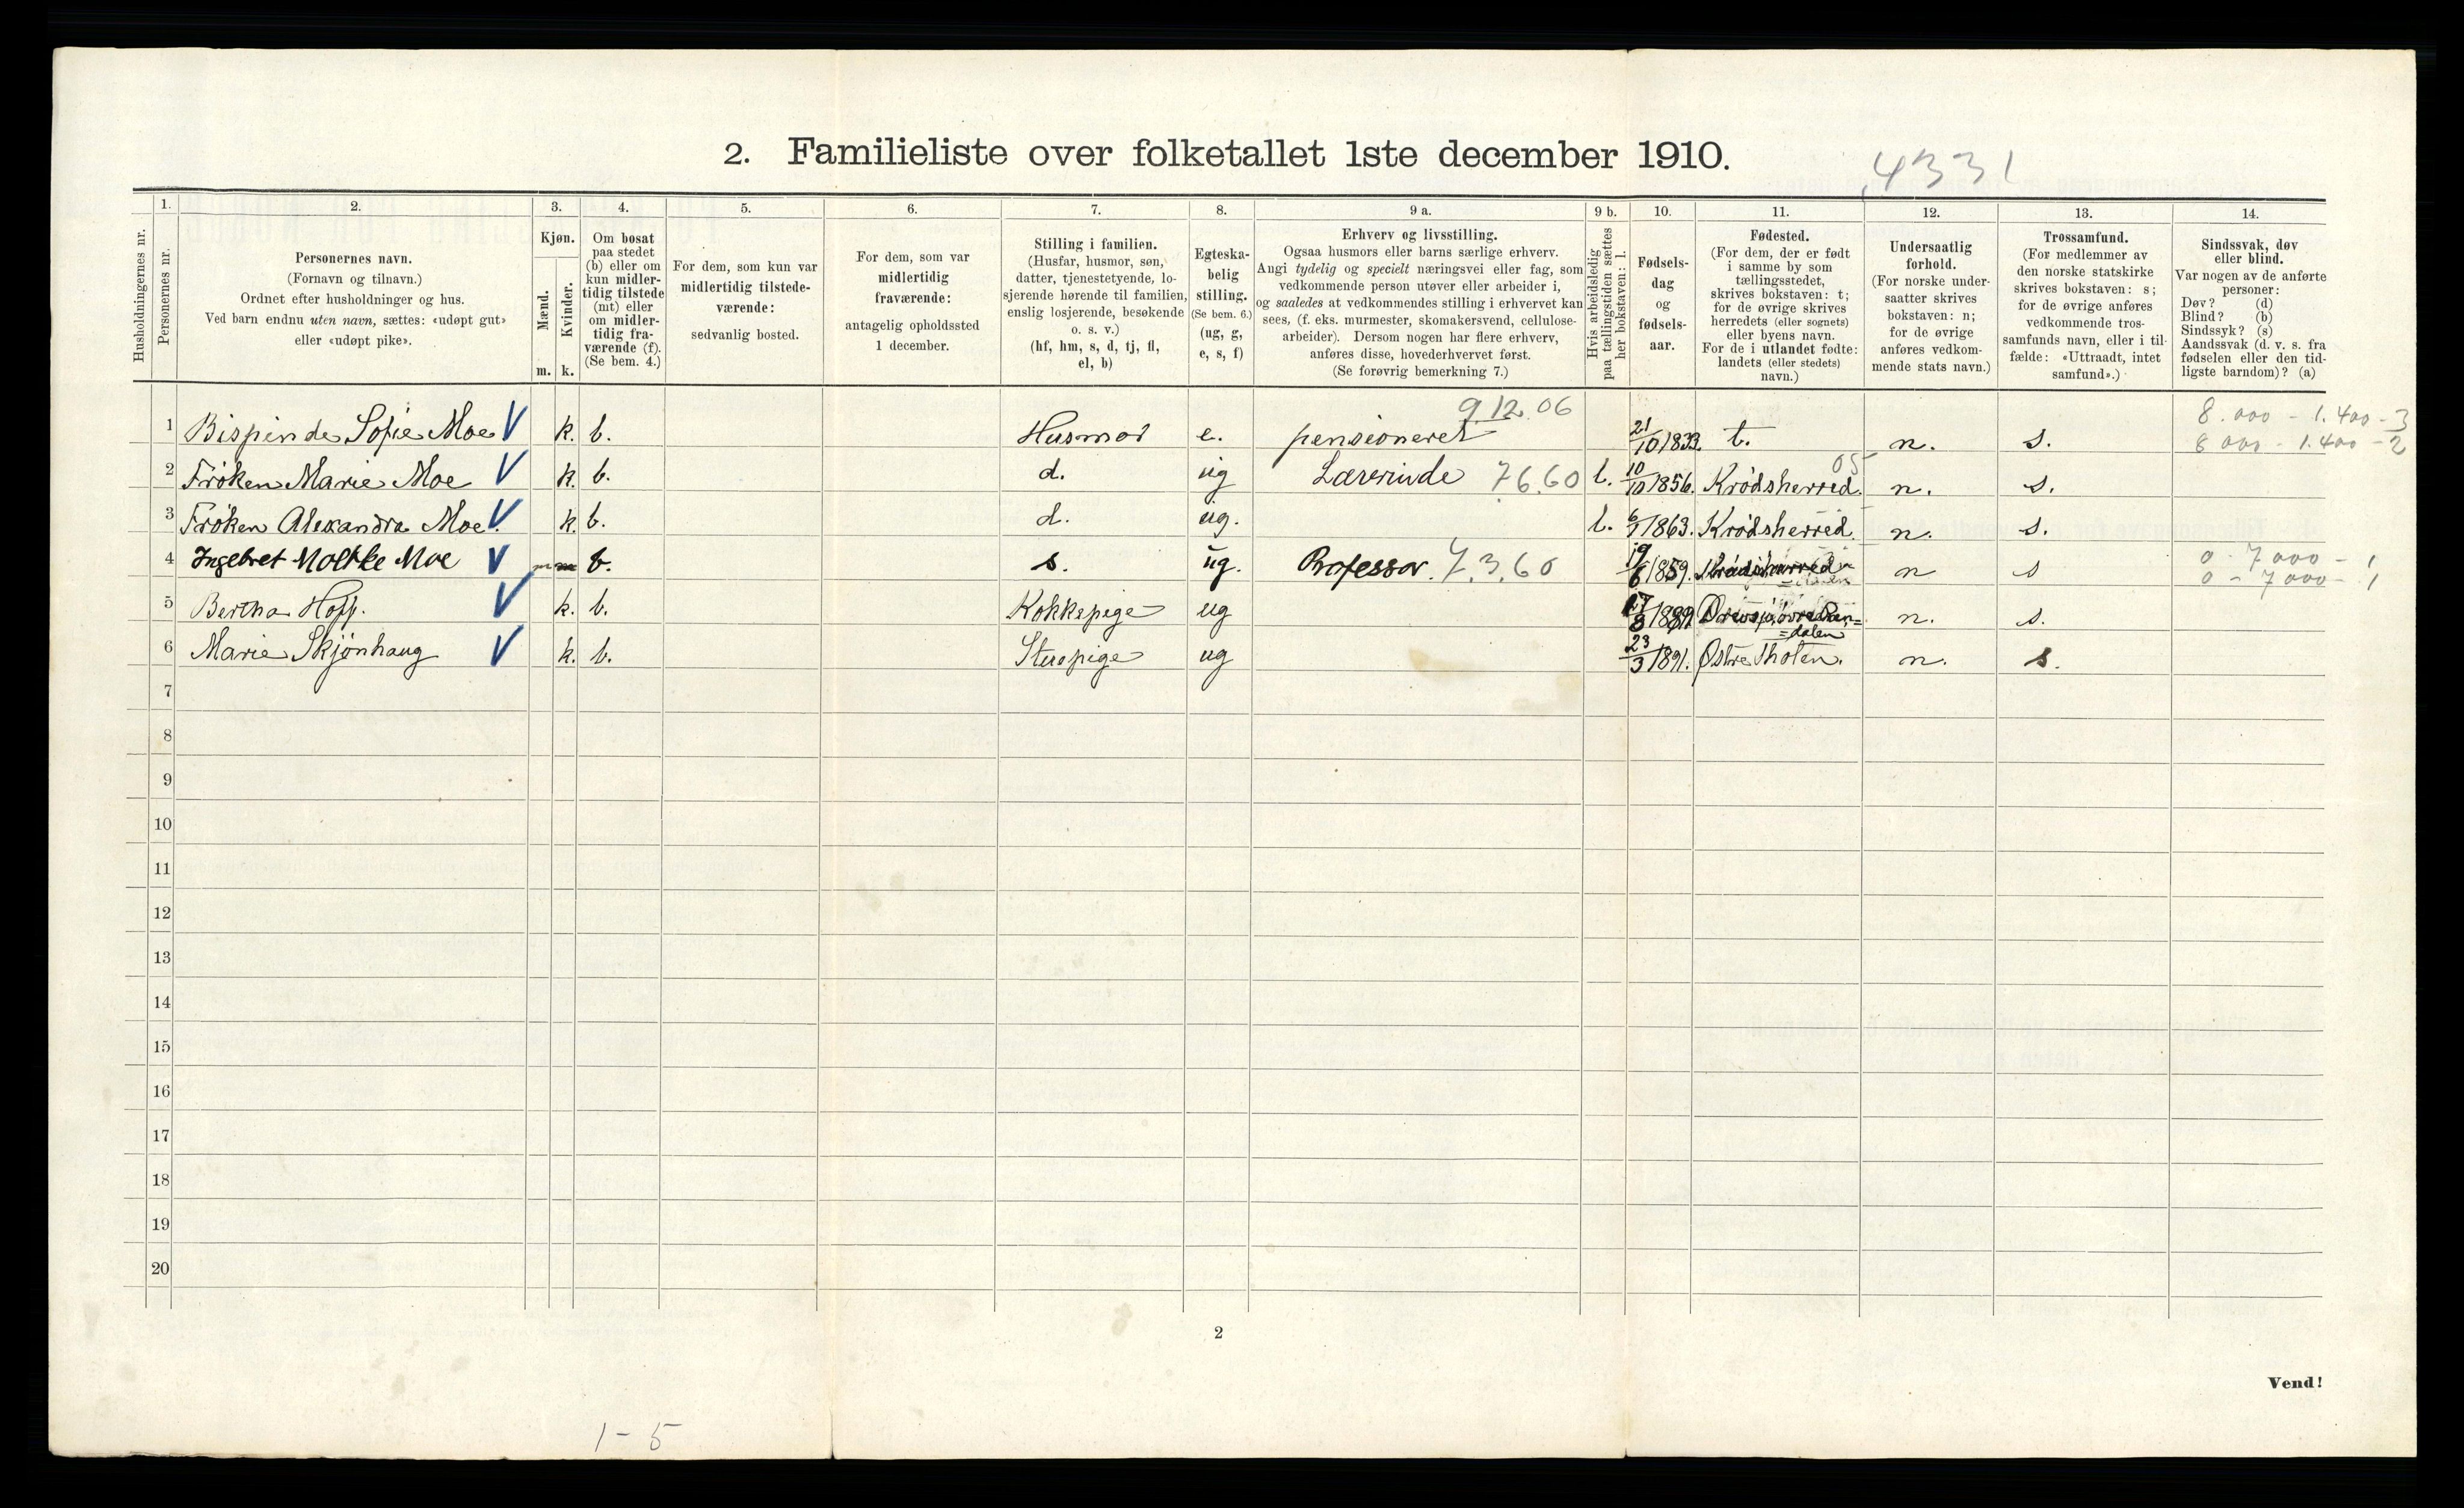 2. Familieliste over folketallet 1ste december 1910.
4331
Husholdningernes nr.
1.
Personernes nr.
2.
Personernes navn.
(Fornavn og tilnavn.)
Ordnet efter husholdninger og hus.
Ved barn endnu uten navn, sættes: «udøpt gut»
eller «udøpt pike».
3.
Kjøn.
Mænd.
Kvinder.
m. k.
4.
Om bosat
paa stedet
(b) eller om
kun midler-
tidig tilstede
(mt) eller
om midler-
tidig fra-
værende (f).
(Se bem. 4.)
5.
For dem, som kun var
midlertidig tilstede-
værende:
sedvanlig bosted.
6.
For dem, som var
midlertidig
fraværende:
antagelig opholdssted
1 december.
7.
Stilling i familien.
(Husfar, husmor, søn,
datter, tjenestetyende, lo-
sjerende hørende til familien,
enslig losjerende, besøkende
o. s. v.)
(hf, hm, s, d, tj, fl,
el, b)
8.
Egteska-
belig
stilling.
(Se bem. 6.)
(ug, g,
e, s, f)
9 a.
Erhverv og livsstilling.
Ogsaa husmors eller barns særlige erhverv.
Angi tydelig og specielt næringsvei eller fag, som
vedkommende person utøver eller arbeider i,
og saaledes at vedkommendes stilling i erhvervet kan
sees, (f. eks. murmester, skomakersvend, cellulose-
arbeider). Dersom nogen har flere erhverv,
anføres disse, hovederhvervet først.
(Se forøvrig bemerkning 7.)
9 b.
Hvis arbeidsledig
paa tællingstiden sættes
her bokstaven: l.
10.
Fødsels-
dag
og
fødsels-
aar.
11.
Fødested.
(For dem, der er født
i samme by som
tællingsstedet,
skrives bokstaven: t;
for de øvrige skrives
herredets (eller sognets)
eller byens navn.
For de i utlandet fødte:
landets (eller stedets)
navn.)
12.
Undersaatlig
forhold.
(For norske under-
saatter skrives
bokstaven: n;
for de øvrige
anføres vedkom-
mende stats navn.)
13.
Trossamfund.
(For medlemmer av
den norske statskirke
skrives bokstaven: s;
for de øvrige anføres
vedkommende tros-
samfunds navn, eller i til-
fælde: «Uttraadt, intet
samfund».)
14.
Sindssvak, døv
eller blind.
Var nogen av de anførte
personer:
Døv? (d)
Blind? (b)
Sindssyk? (s)
Aandssvak (d. v. s. fra
fødselen eller den tid-
ligste barndom)? (a)
9 12.06
8.000 - 1.400 - 3
1 Bispinde Sofie Moe V k. b. Husmor e. pensioneret 21/10 1833. t. n. s. 8 000 - 1.400 - 2
05
2 Frøken Marie Moe V k. b. d. ug Lærerinde 76.60 l. 10/10 1856. Krødsherred. n. s.
3 Frøken Alexandra Moe. V k. b. d. ug. l. 6/1 1863. Krødsherred. n. s.
0 - 7 000 - 1
4 Ingebret Moltke Moe V m b. s. ug. Professor. 7.3.60 19/6 1859. Krødsherred n s 0 - 7 000 - 1
5 Bertha Hoff. V k. b. Kokkepige ug n. s.
6 Marie Skjønhaug V k. b. Stuepige ug 23/3 1891. Østre Thoten. n. s.
7
8
9
10
11
12
13
14
15
16
17
18
19
20
2
Vend!
1 - 5